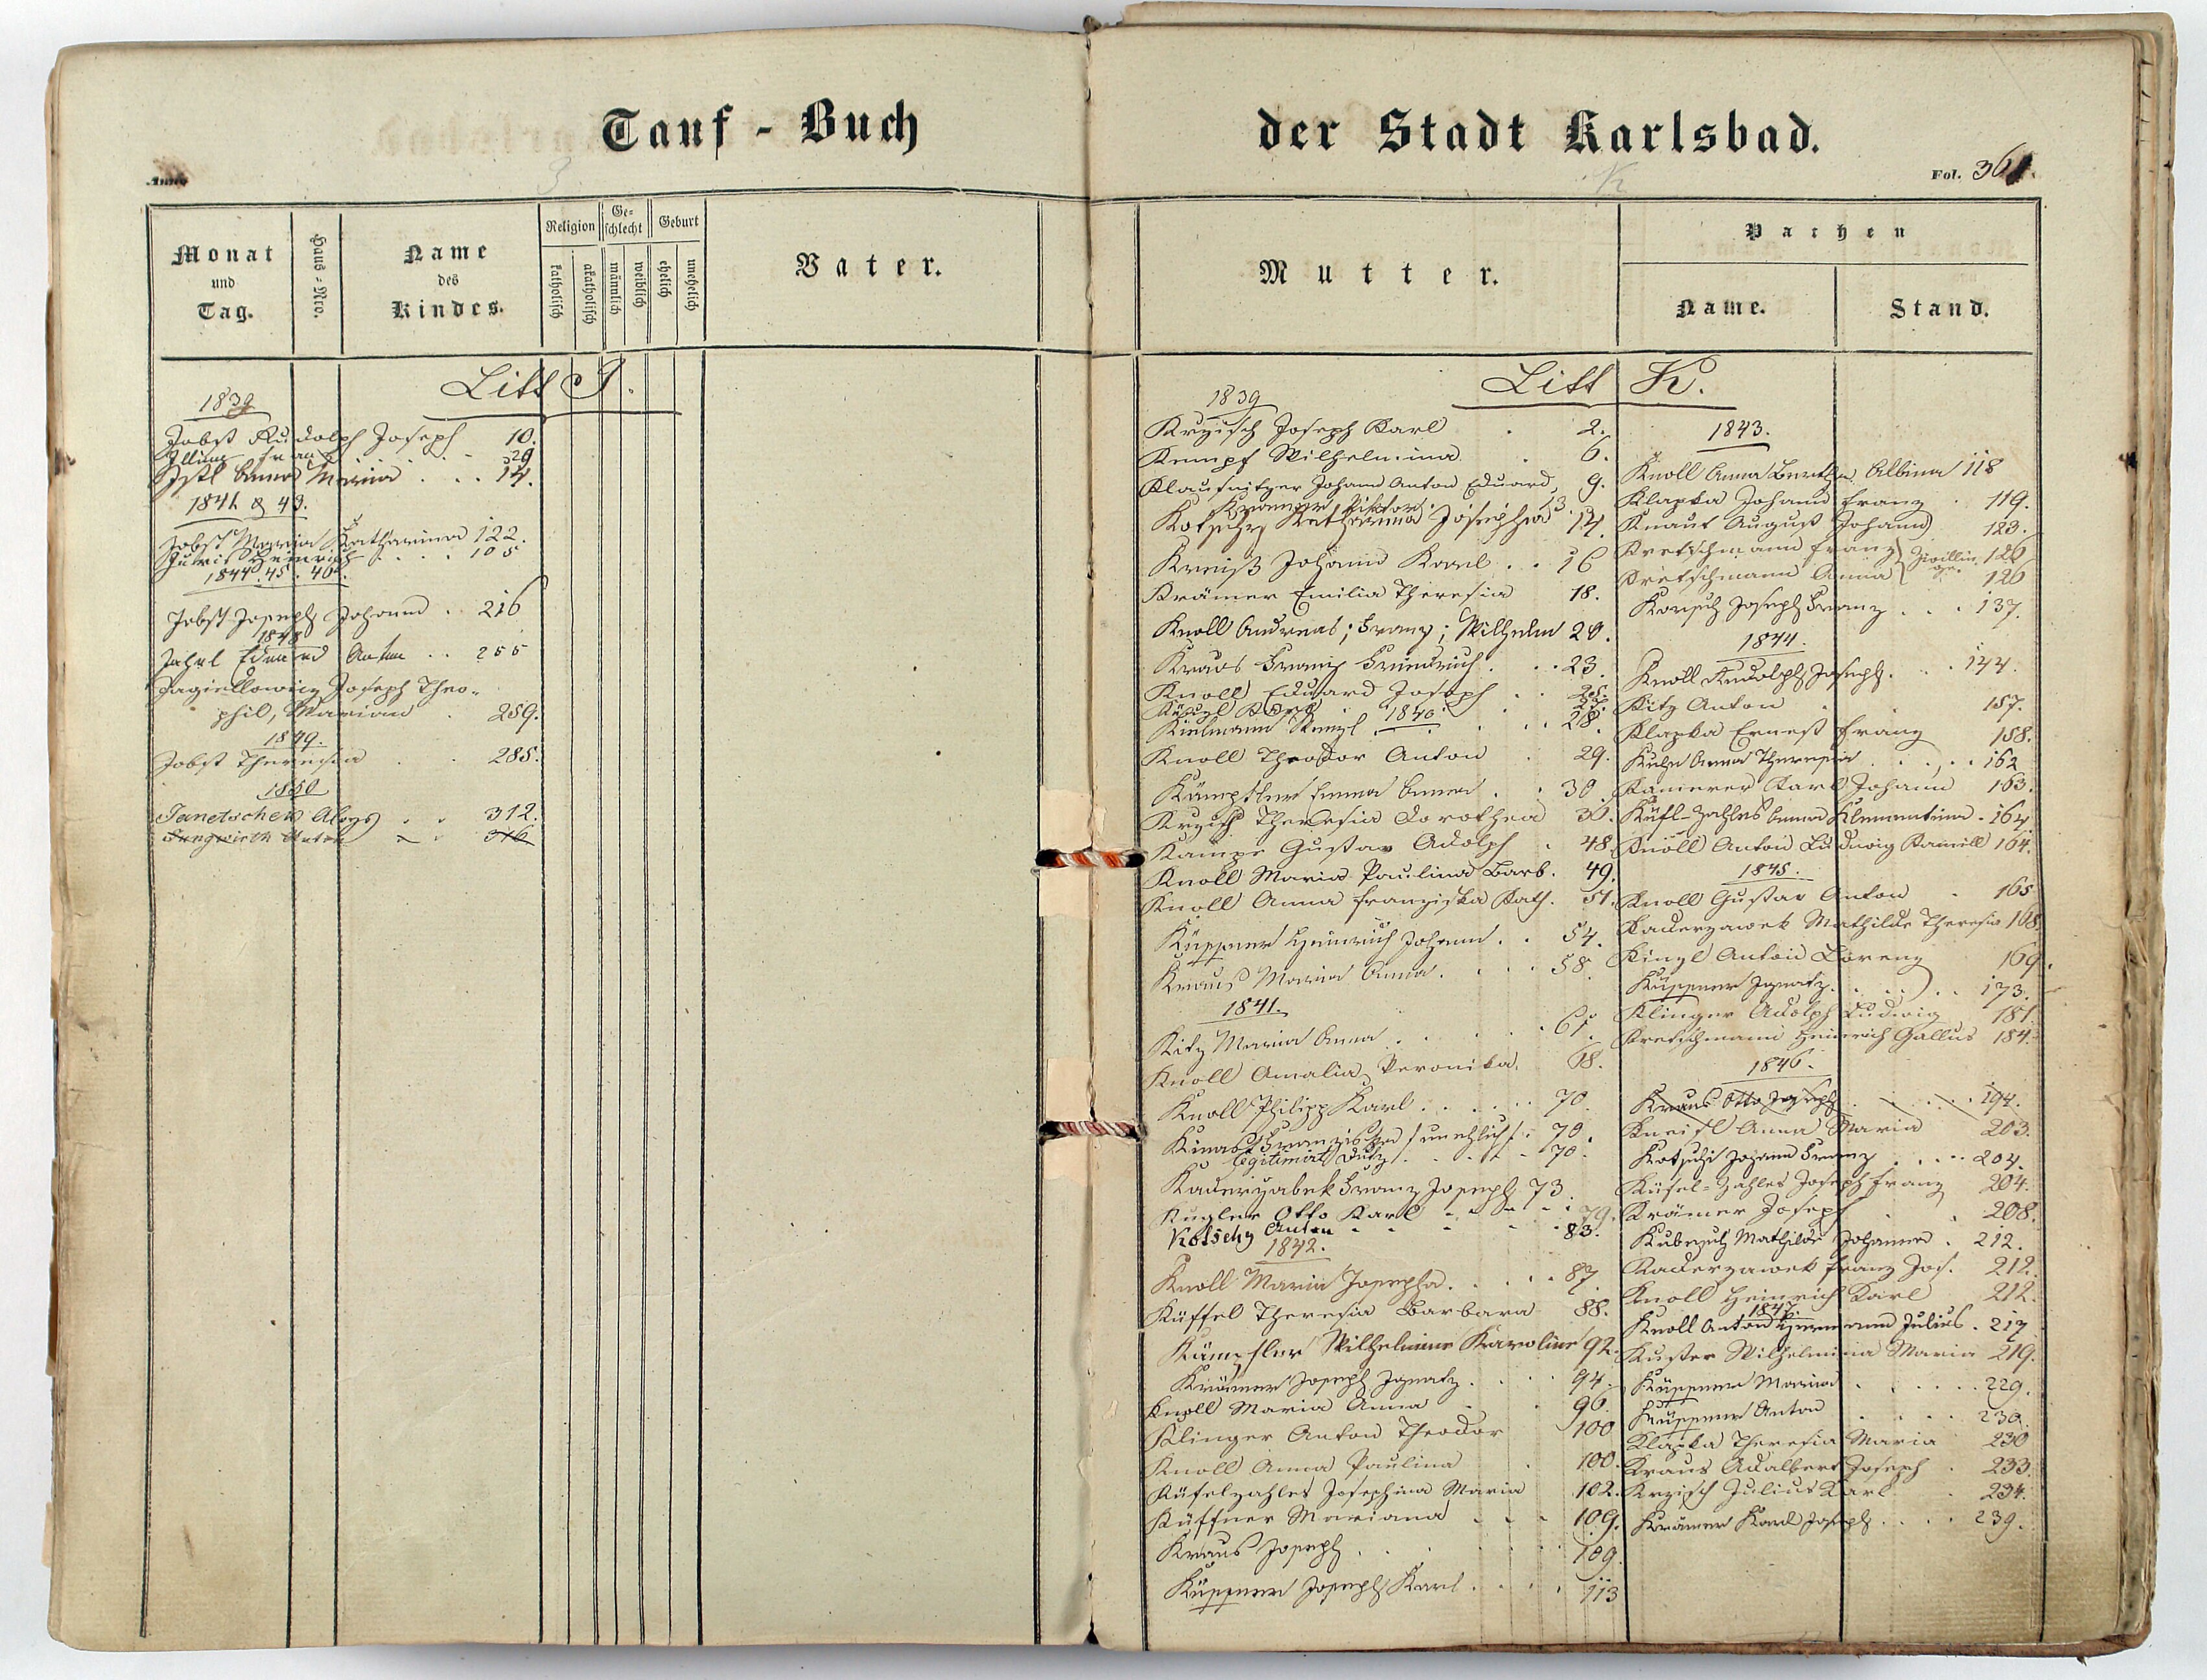 Tauf - Buch
der Stadt Karlsbad.
Anno
Fol. 361.
Monat
und
Tag.
Haus-Nro.
Name
des
Kindes.
Religion
katholisch
akatholisch
Geschlecht
männlich
weiblich
Geburt
ehelich
unehelich
Vater.
Litt J.
1839
Jobst Rudolph Joseph 10.
Illing Franz 29
Anna Maria 14.
1841 & 43.
Jobst Maria Katharina 122.
Heinrich 105
1844. 45. 46.
Jobst Joseph Johann 216
1848
Jahel Eduard Anton 255
Jagiellowicz Joseph Theo-
phil, Marian 259.
1849.
Jobst Theresia 285.
1850
Janetschek Aloys 312.
Jungwirth Anton 316
Mutter.
Pathen
Name.
Stand.
Litt K.
1839
Krzisch Joseph Karl 2.
Kempf Wilhelmina 6.
Klausnitzer Johann Anton Eduard, 9.
Kramer Viktor 13.
Kotschy Katharina Josepha 14.
Kreuß Johann Karl 16
Krämer Emilia Theresia 18.
Knoll Andreas; Franz; Wilhelm 20.
Kraus Franz Friedrich 23.
Knoll Eduard Joseph 25.
1840.
Kielmann Wenzl 28.
Knoll Theodor Anton 29.
Kämpfler Emma Anna 30
Krzisch Theresia Dorothea 36.
Kampe Gustav Adolph 48.
Knoll Maria Paulina Barb. 49.
Knoll Anna Franziska Kath. 51.
Küppner Heinrich Johann 54.
Kraus Maria Anna 58.
1841.
Kitz Maria Anna 61.
Knoll Amalia Veronika 68.
Knoll Philipp Karl 70.
Kinast Franziska /unehlich/ 70.
legitimirt Dutz 70.
Kaderzabek Franz Joseph 73.
Kugler Otto Karl 79.
Kotschy Anton 83.
1842.
Knoll Maria Josepha 87.
Küffel Theresia Barbara 88.
Kämpfler Wilhelmine Karoline 92.
Krämer Joseph Ignatz 94.
Knoll Maria Anna 96.
Klinger Anton Theodor 100
Knoll Anna Paulina 100.
Küfelzahles Josephina Maria 102.
Küffner Mariana 109.
Kraus Joseph 109.
Küppner Joseph Karl 113
1843.
Knoll Anna Bertha Albina 118
Klapka Johann Franz 119.
Knaut August Johann 123.
Kretschmann Franz } Zwillin- 126
Kretschmann Anna } ge. 126
Korsch Joseph Franz 137.
1844.
Knoll Rudolph Joseph 144.
Kitz Anton 157.
Klapka Ernest Franz 158.
Kuhn Anna Theresia 162
Kamerer Karl Johann 163.
Küfl-Zahles Anna Klementina 164.
Knoll Anton Ludwig Kamill 164.
1845.
Knoll Gustav Anton 165
Kaderzawek Mathilde Theresia 168.
Kinzl Anton Lorenz 169.
Küppner Ignatz 173.
Klinger Adolph Ludwig 181.
Kretschmann Heinrich Gallus 184.
1846.
Kraus Otto Joseph 194.
Kneisl Anna Maria 203.
Kotschi Johann Franz 204.
Küfel-Zahles Joseph Franz 204.
Krämer Joseph 208.
Mathilde Johanna 212.
Kaderzawek Franz Jos. 212.
Knoll Heinrich Karl 212.
1847.
Knoll Anton Hermann Julius 217
Kuster Wilhelmina Maria 219.
Küppner Maria 229.
Küppner Anton 230.
Klapka Theresia Maria 230
Kraus Adalbert Joseph 233.
Krzisch Julius Karl 234.
Krämer Karl Joseph 239.